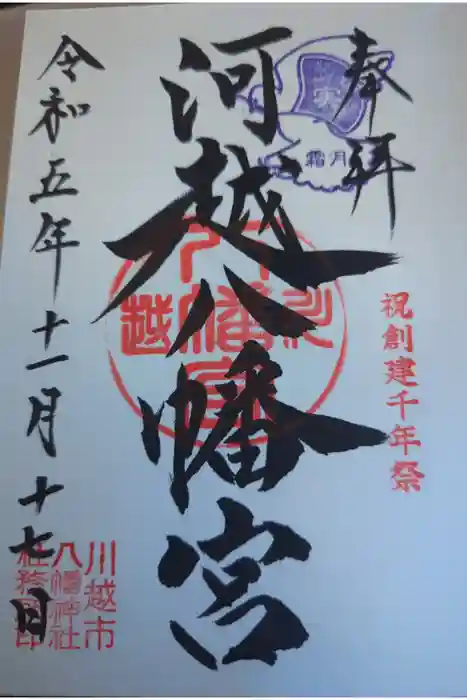 奉拝
霜月
祝創建千年祭
河越八幡宮
川越
八幡宮
令和五年十一月十七日
川越市
八幡神社
社務所印